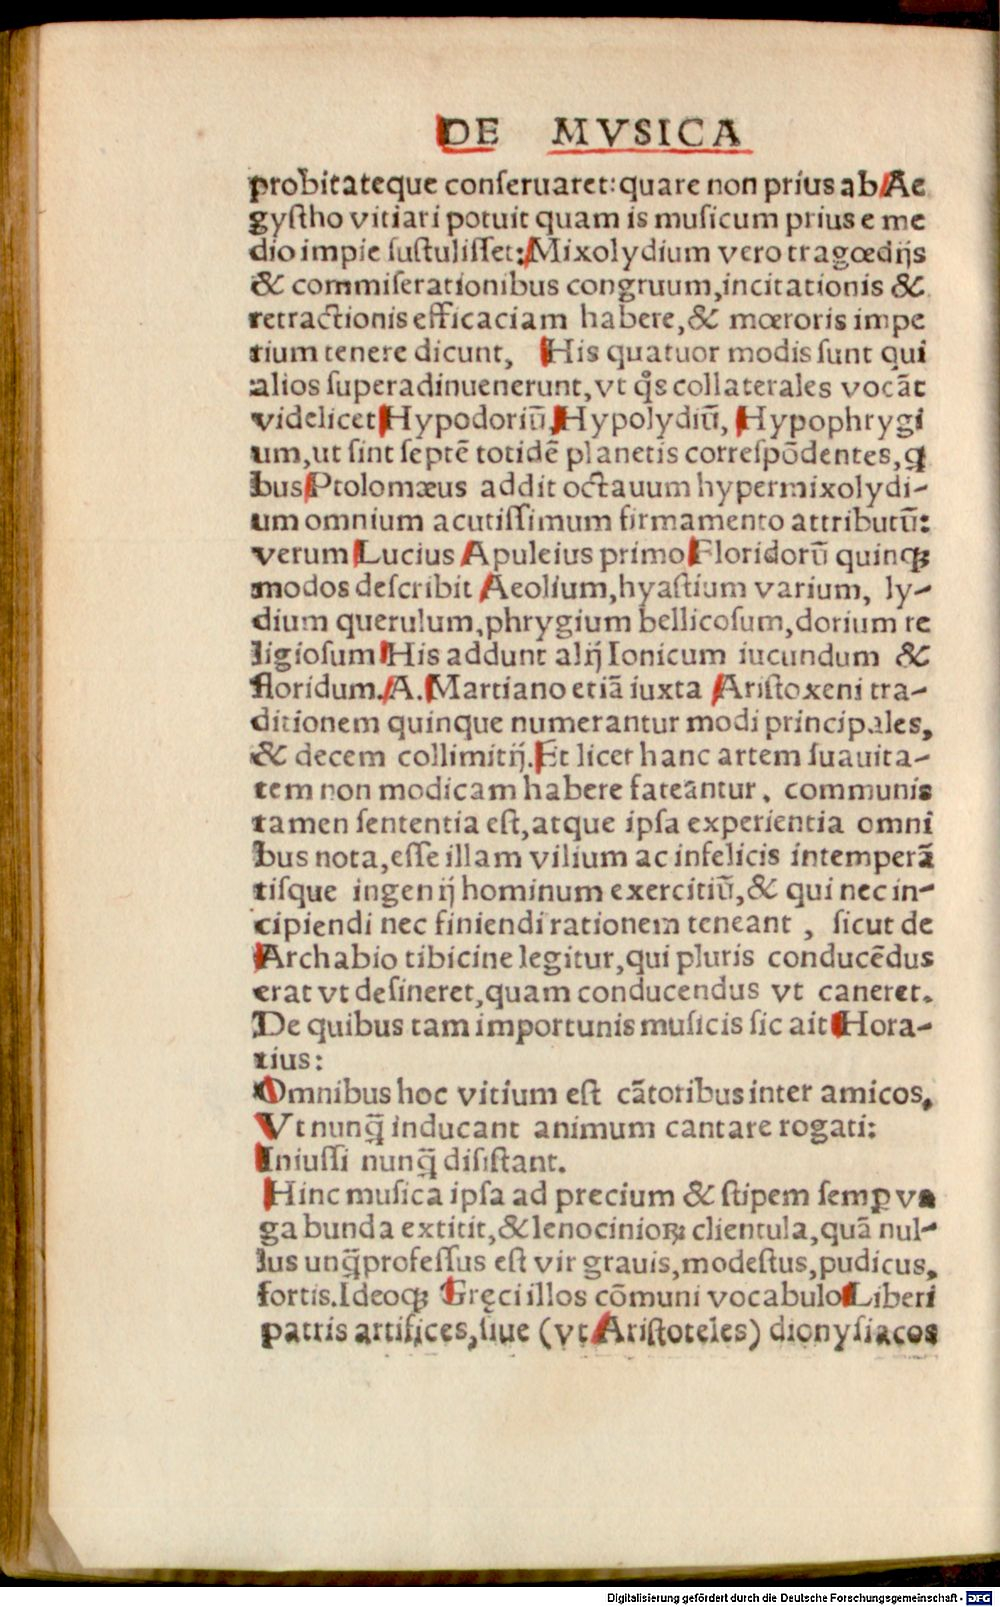 DE MVSICA
probitateque conſeruaret: quare non prius ab Ae
gyſtho vitiari potuit quam is muſicum prius e me
dio impie ſuſtuliſſet: Mixolydium vero tragœdijs
& commiſerationibus congruum, incitationis &
retractionis efficaciam habere, & mœroris impe
rium tenere dicunt, His quatuor modis ſunt qui
alios ſuperadinuenerunt, vt qͦs collaterales vocãt
videlicet Hypodoriũ, Hypolydiũ, Hypophrygi
um, ut ſint ſeptẽ totidẽ planetis correſpõdentes, ꝗ
bus Ptolomæus addit octauum hypermixolydi-
um omnium acutiſſimum firmamento attributũ:
verum Lucius Apuleius primo Floridorũ quinqꝫ
modos deſcribit Aeolium, hyaſtium varium, ly-
dium querulum, phrygium bellicoſum, dorium re
ligioſum His addunt alij Ionicum iucundum &
floridum. A. Martiano etiã iuxta Ariſtoxeni tra-
ditionem quinque numerantur modi principales,
& decem collimitij. Et licet hanc artem ſuauita-
tem non modicam habere fateantur, communis
tamen ſententia eſt, atque ipſa experientia omni
bus nota, eſſe illam vilium ac infelicis intemperã
tiſque ingenij hominum exercitiũ, & qui nec in-
cipiendi nec finiendi rationem teneant, ſicut de
Archabio tibicine legitur, qui pluris conducẽdus
erat vt deſineret, quam conducendus vt caneret.
De quibus tam importunis muſicis ſic ait Hora-
tius:
Omnibus hoc vitium eſt cãtoribus inter amicos,
Vt nunq̃ inducant animum cantare rogati:
Iniuſſi nunq̃ diſiſtant.
Hinc muſica ipſa ad precium & ſtipem ſemꝑ va
ga bunda extitit, & lenocinioꝝ clientula, quã nul-
lus unq̃ profeſſus eſt vir grauis, modeſtus, pudicus,
fortis. Ideoqꝫ Gręci illos cõmuni vocabulo Liberi
patris artifices, ſiue (vt Ariſtoteles) dionyſiacos
Digitalisierung gefördert durch die Deutsche Forschungsgemeinschaft - DFG